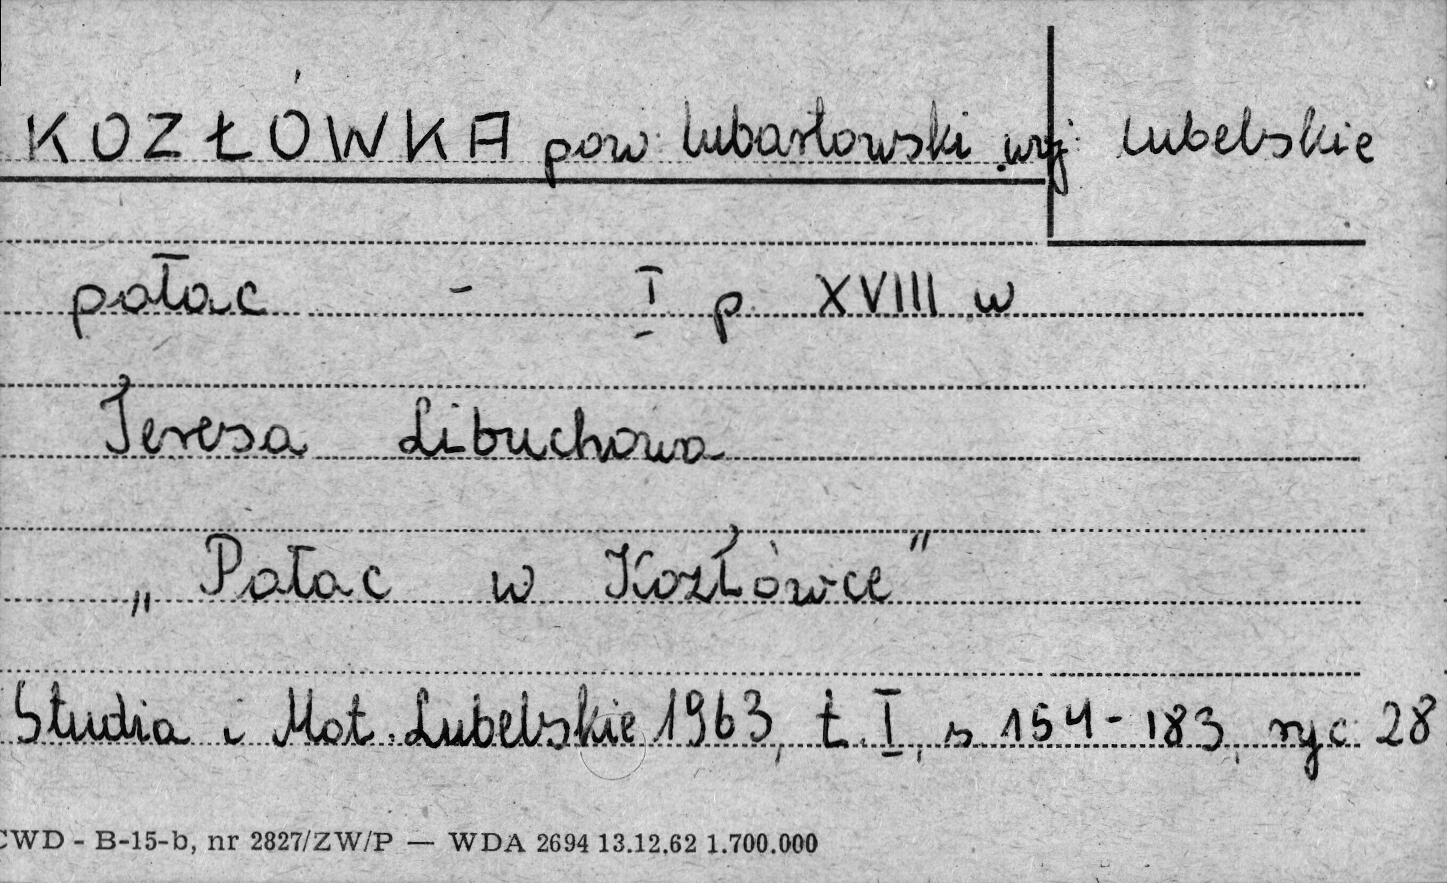 KOZŁÓWKA pow. lubartowski woj. lubelskie
pałac - I p. XVIII w
Teresa Libuchowa
„Pałac w Kozłówce"
Studia i Mat. Lubelskie 1963, t. I, s. 154-183, ryc. 28
CWD - B-15-b, nr 2827/ZW/P — WDA 2694 13.12.62 1.700.000